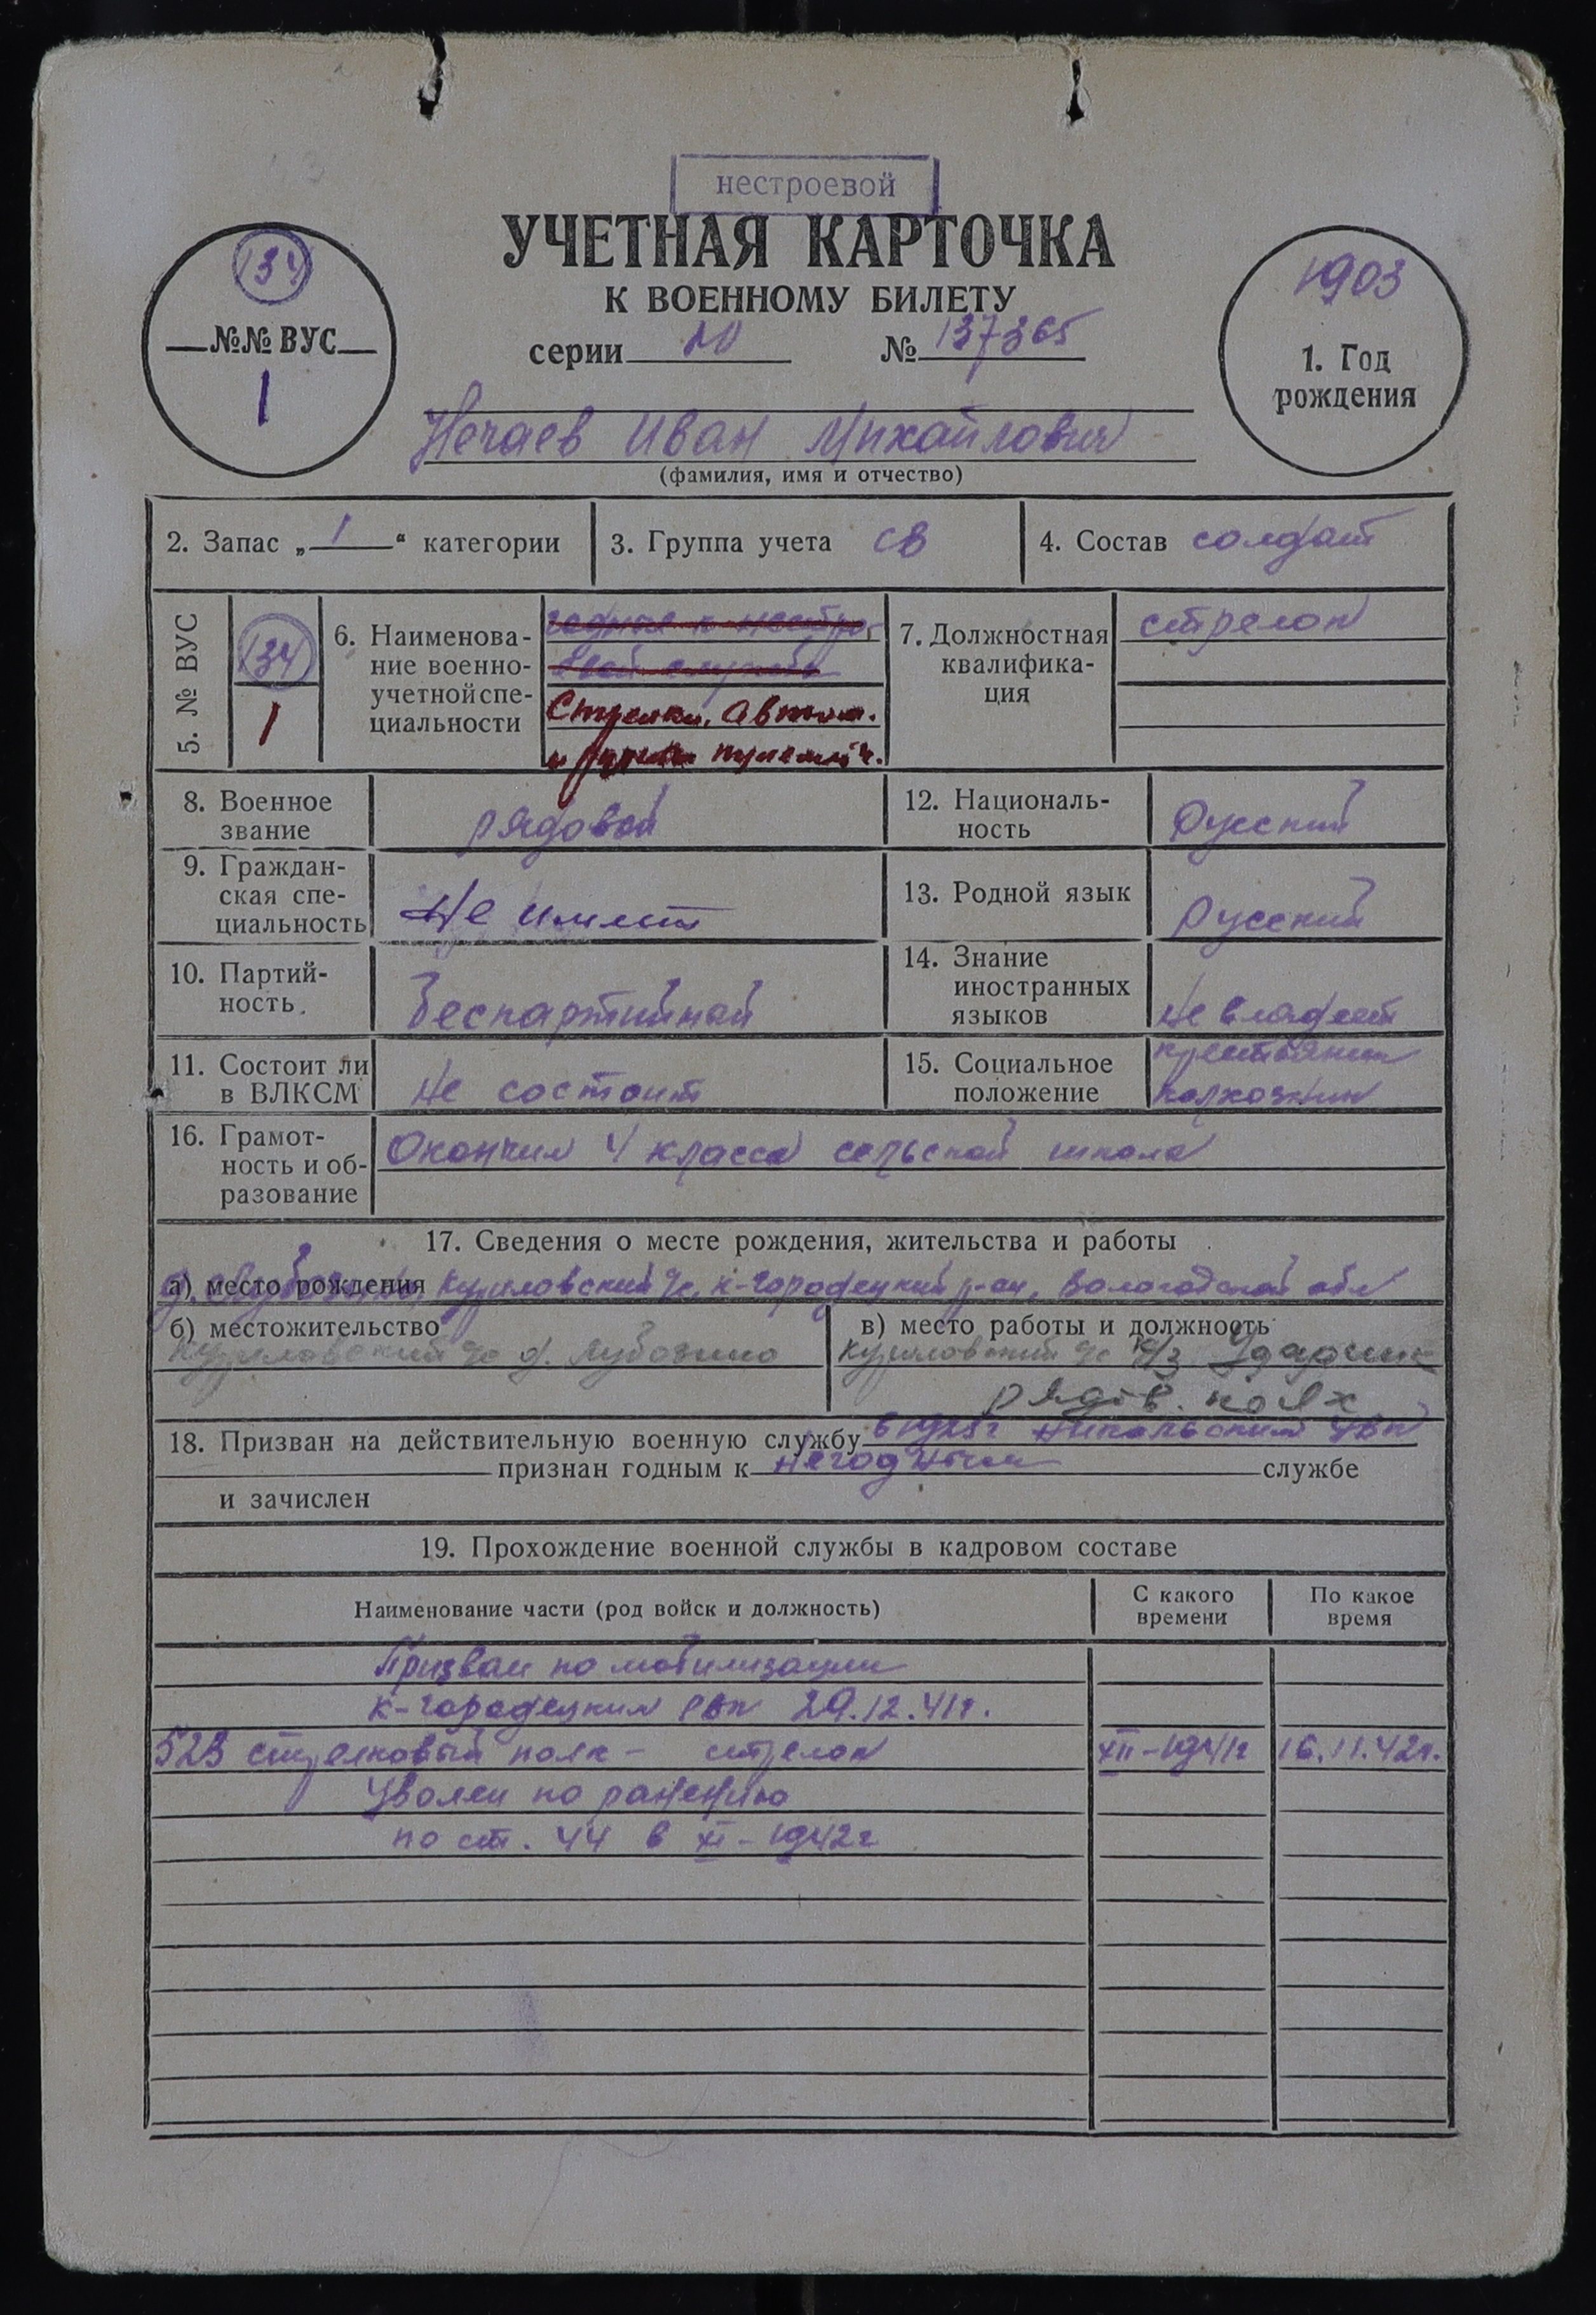 нестроевой
УЧЕТНАЯ КАРТОЧКА
К ВОЕННОМУ БИЛЕТУ
серии № 137365
134
№№ ВУС
1
1903
1. Год
рождения
Нечаев Иван Михайлович
(фамилия, имя и отчество)
2. Запас „ 1 “ категории
3. Группа учета СВ
4. Состав солдат
5. № ВУС
134
1
6. Наименова-
ние военно-
учетной спе-
циальности
годные к нестро
евой службе
Стрелки, автом.
и ручные пулемётч.
7. Должностная
квалифика-
ция
стрелок
8. Военное
звание
рядовой
12. Националь-
ность
Русский
9. Граждан-
ская спе-
циальность
Не имеет
13. Родной язык
Русский
10. Партий-
ность
беспартийной
14. Знание
иностранных
языков
Не владеет
11. Состоит ли
в ВЛКСМ
Не состоит
15. Социальное
положение
крестьянин
колхозник
16. Грамот-
ность и об-
разование
Окончил 4 класса сельской школа
17. Сведения о месте рождения, жительства и работы
а) место рождения Куриловский с/с, к-городецкий р-он, Вологодской обл
б) местожительство
Куриловский с/с д. Лубозино
в) место работы и должность
Куриловский с/с к/з Ударник
рядов. колх
18. Призван на действительную военную службу в 1925г Никольский УВК
признан годным к негодным службе
и зачислен
19. Прохождение военной службы в кадровом составе
Наименование части (род войск и должность)
С какого
времени
По какое
время
Призван по мобилизации
к-городецким РВК 29.12.41г.
523 стрелковый полк - стрелок XII-1941г 16.11.42г.
Уволен по ранению
по ст. 44 в XI-1942г